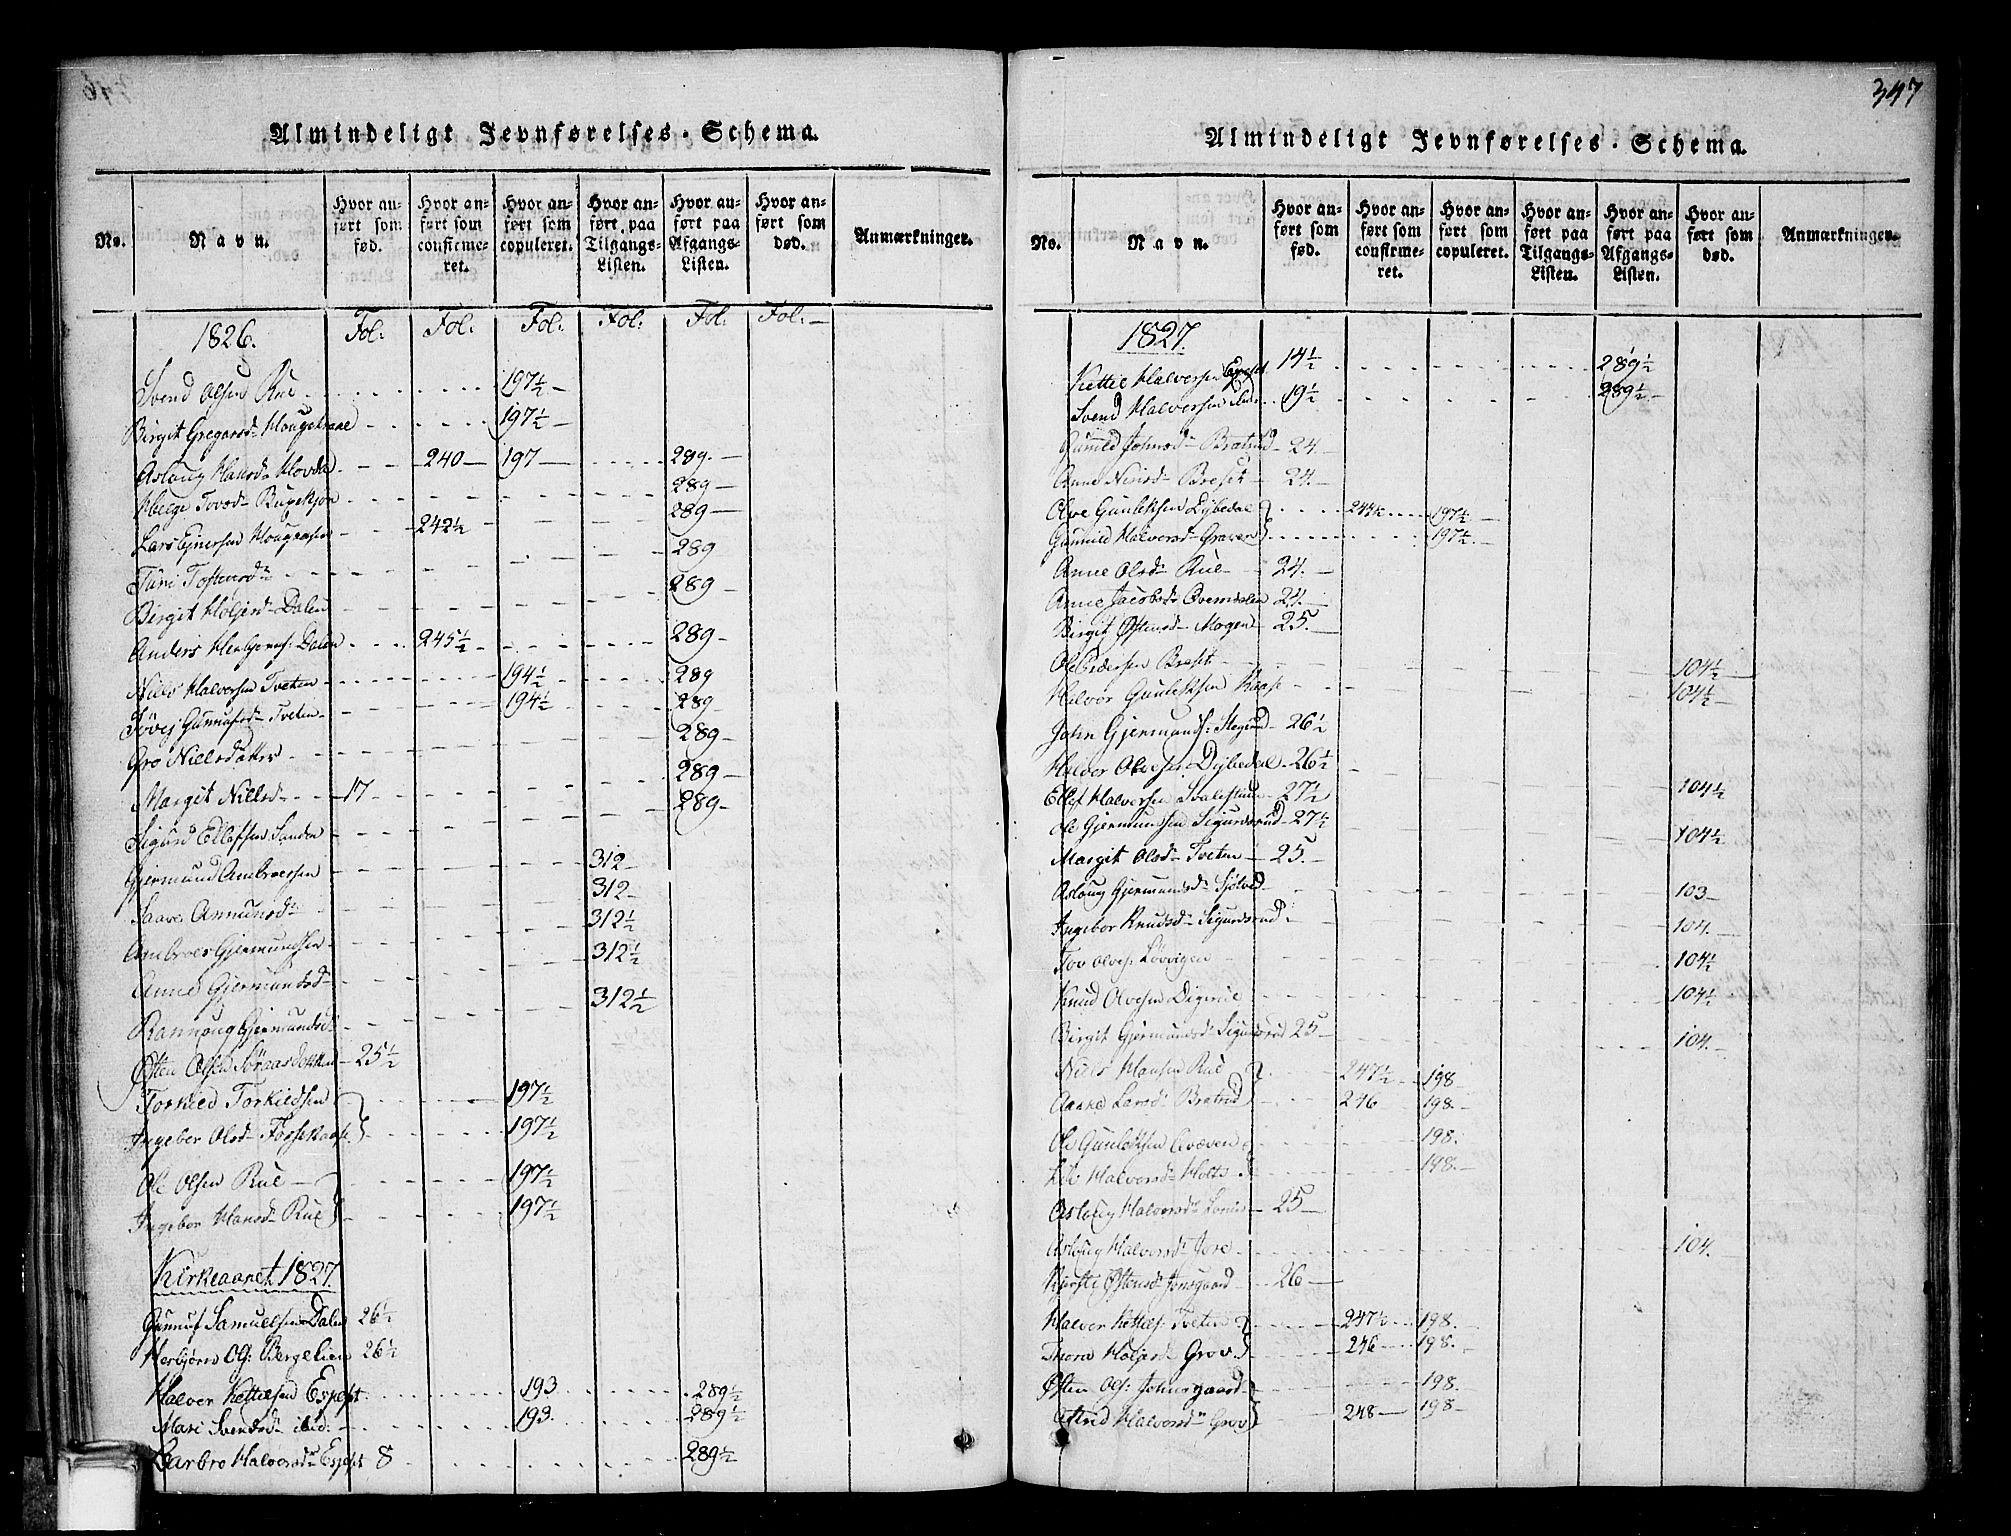 346
Almindeligt Jevnførelses-Schema.
No. | Navn. | Hvor anført som fød. | Hvor anført som confirmeret. | Hvor anført som copuleret. | Hvor anført paa Tilgangs-Listen. | Hvor anført paa Afgangs-Listen. | Hvor anført som død. | Anmærkninger.
1826. Fol: Fol: Fol: Fol: Fol: Fol:
Svend Olsen Rue 197½
Birgit Gregarsd Hougekaae 197½
Aslaug Hansd Hovde 240 197 289
Helge Tovsd 289
Lars Ejnersen 242½ 289
Turi Tostensd 289
Birgit Holjesd Dalen 289
Anders Herbjørns: Dalen 245½ 289
Niels Halversen Tveten 194½ 289
Tøvej Gunnufsd Tveten 194½ 289
Gro Nielsdatter 289
Margit Nielsd 17 289
Sigurd Ellefsen Sanden 289
Gjermund Ambroersen 312
Saave Anmundsd 312
Ambroes Gjermundsen 312½
Anne Gjermundsd 312½
Rannoug Gjermundsd 312½
Østen Olsen Søraasdokken 25½
Torkild Torkildsen 197½
Ingebor Olsd Fossekaase 197½
Ole Olsen Rue 197½
Ingebor Hansd Rue 197½
Kirkeaaret 1827.
Gunnuf Samuelsen Dalen 26½
Herbjørn Ols: Bergelien 26½
Halver Kettelsen Espeset 193 289½
Mari Svendsd ibid. 193. 289½
Barbro Halvorsd Espeset 8 289½
347
Almindeligt Jevnførelses-Schema.
No. | Navn. | Hvor anført som fød. | Hvor anført som confirmeret. | Hvor anført som copuleret. | Hvor anført paa Tilgangs-Listen. | Hvor anført paa Afgangs-Listen. | Hvor anført som død. | Anmærkninger.
1827.
Kettil Halversen Espeset 14½ 289½
Svend Halversen ibid. 19½ 289½
Gunild Johnsd Bratrud 24.
Anne Nirisd Breset 24.
Olve Gunleksen Dybedal 197½
Gunnild Halvorsd Graven 197½
Anne Olsd Rue 24.
Anne Jacobsd Overndalen 24.
Birgit Østensd Mogen 25.
Ole Pedersen Breset 104½
Helvor Gunleksen Kaase 104½
John Gjermunds: Stegrud 26½
Halvor Olvesen Dybedal 26½
Ellef Halversen 27½ 104½
Ole Gjermundsen Sigurdsrud 27½ 104½
Margit Olsd Tveten 25.
Aslaug Gjermundsd Sjøtved 103
Ingebor Knudsd Sigurdsrud 104.
Tov Olves: Løvvigen 104½
Knud Olvesen Digerue 104½
Birgit Gjermundsd Sigurdsrud 25 104.
Niels Hansen Rue 247½ 198
Aaske Larsd Bratrud 246 198.
Ole Gunleksen 198.
Liv Halvorsd Holte 198.
Aslaug Halvorsd 25
Aslaug Halvorsd Jore 104.
Kjersti Østensd Jonsgaard 26
Halver Kettels: Tveten 247½ 198.
Thore Holjesd Grov 246 198.
Østen Ols: Johnsgaard 198.
Astrid Halvorsd Grov 248 198